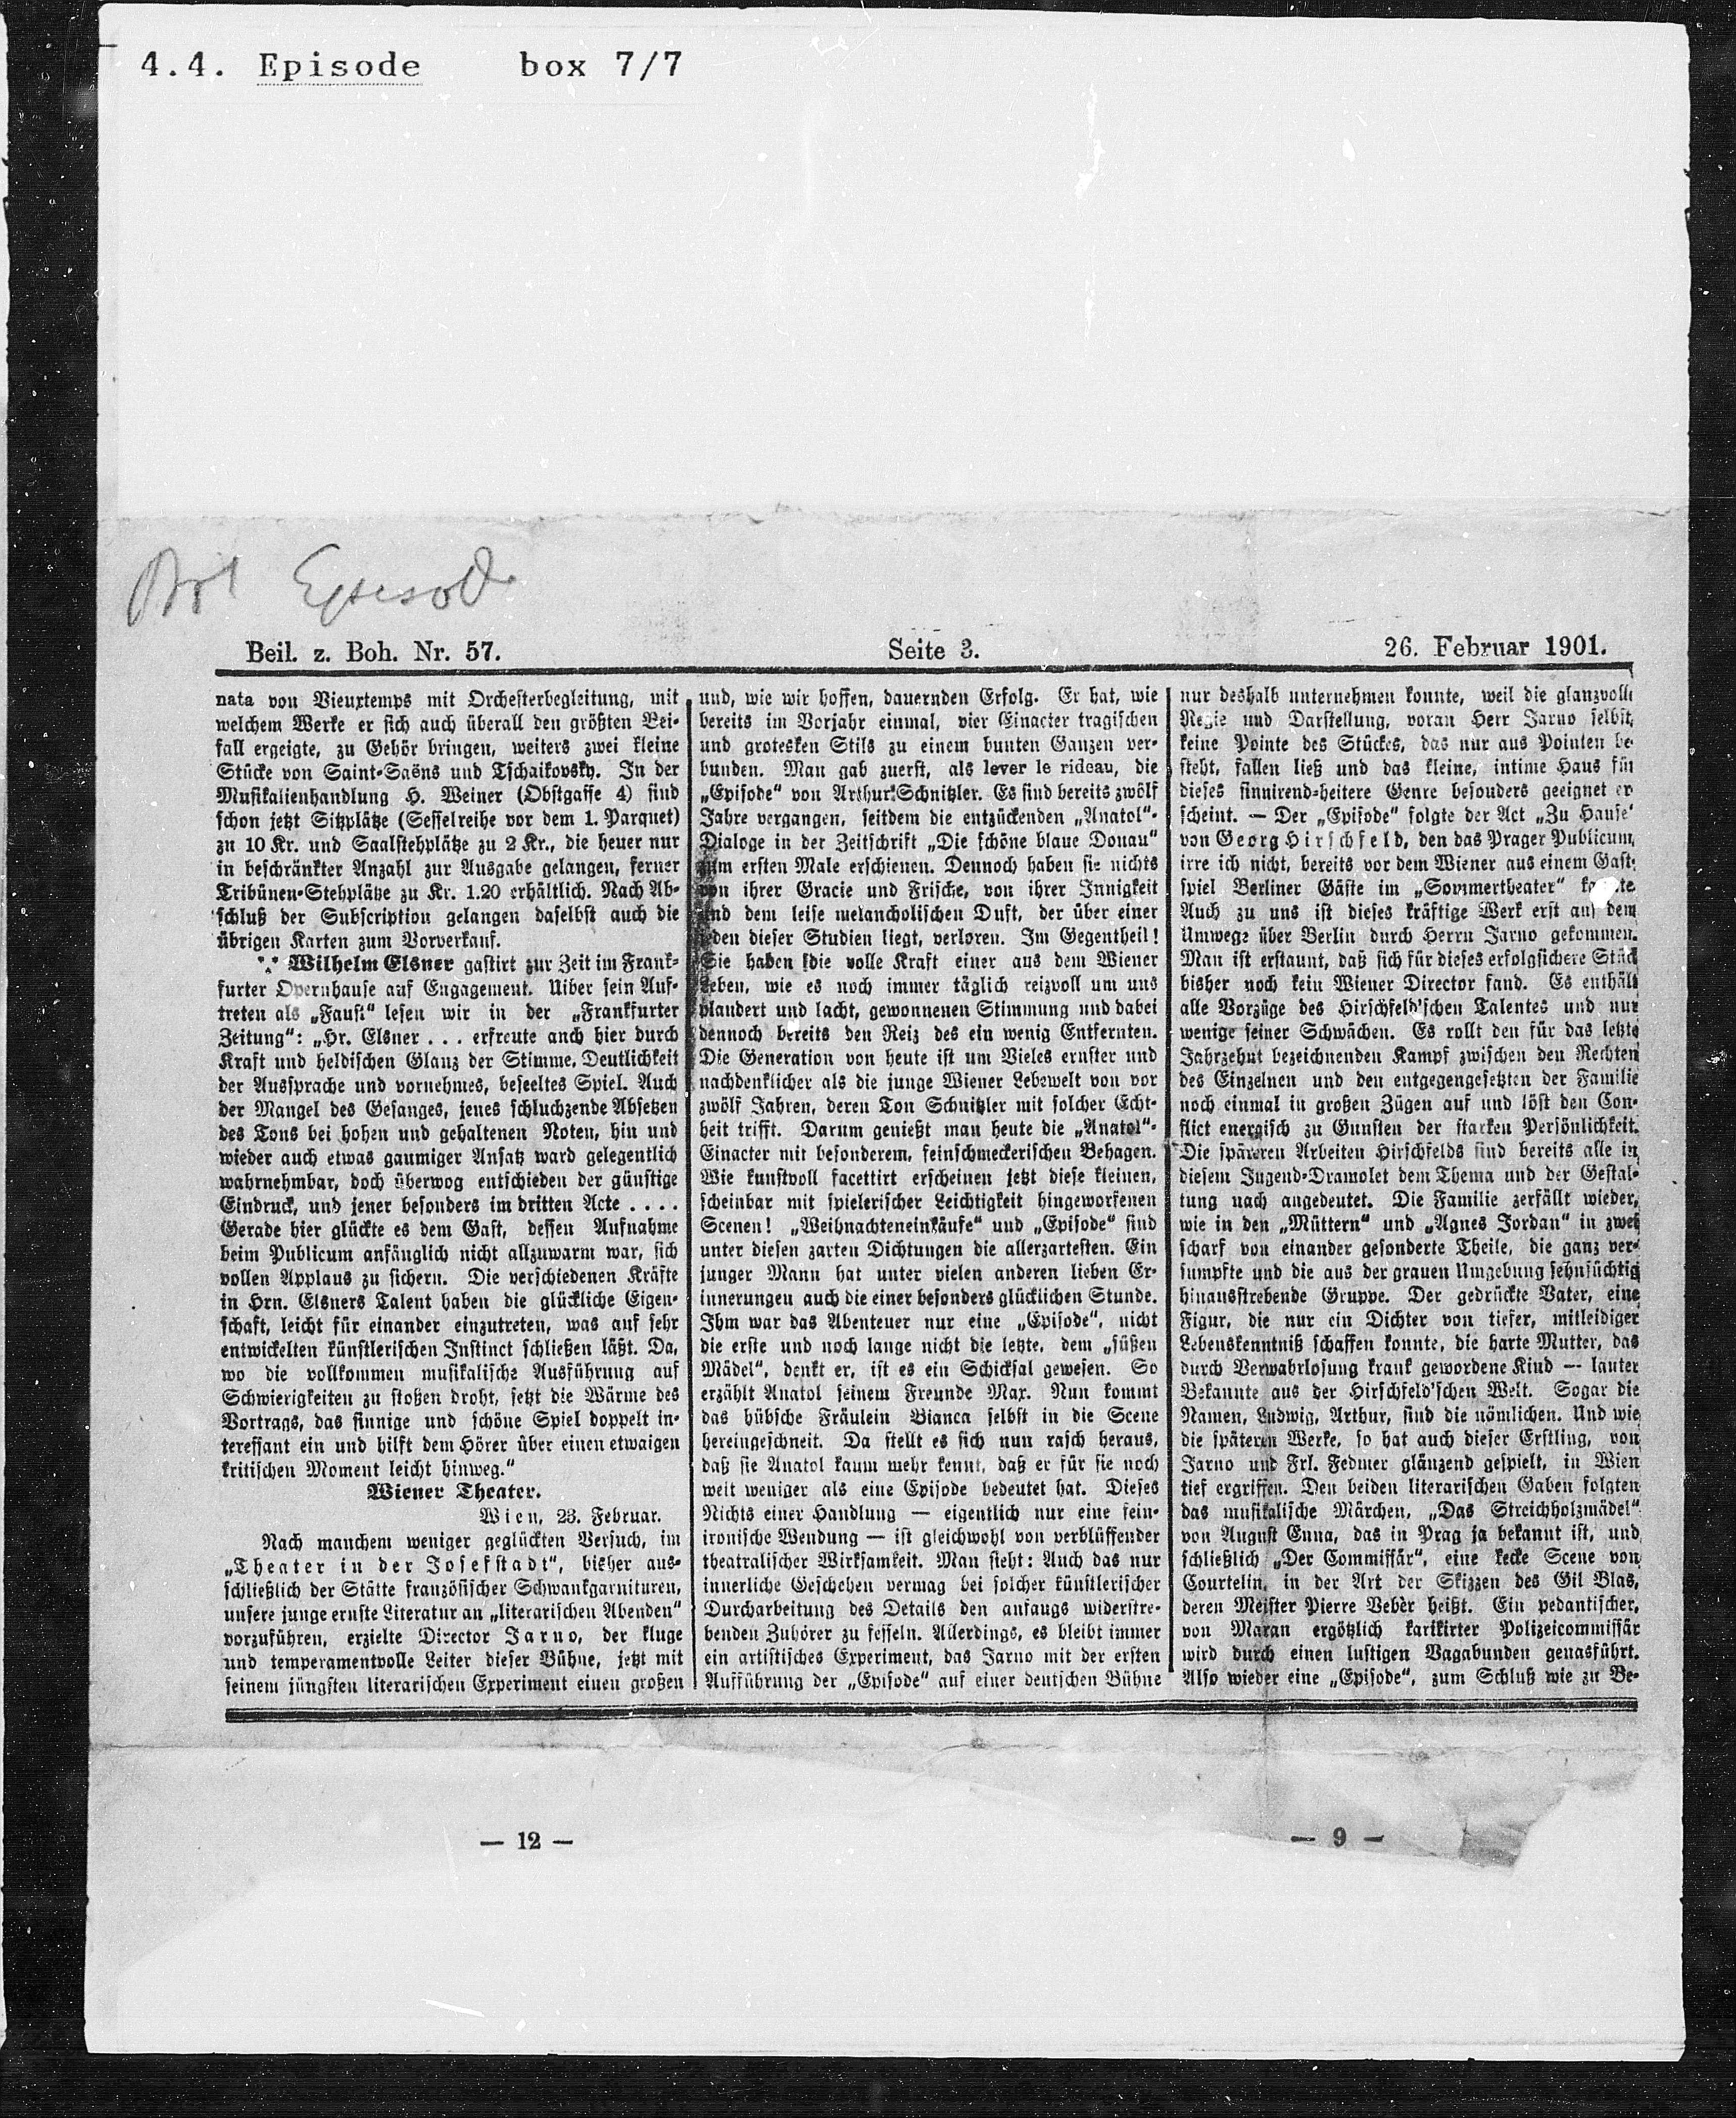 4.4. Episode box 7/7
Episode
Beil. z. Boh. Nr. 57.
Seite 3.
26. Februar 1901.
nata von Vieuxtemps mit Orchesterbegleitung, mit
welchem Werke er sich auch überall den größten Bei-
fall ergeigte, zu Gehör bringen, weiters zwei kleine
Stücke von Saint-Saëns und Tschaikovsky. In der
Musikalienhandlung H. Weiner (Obstgasse 4) sind
schon jetzt Sitzplätze (Sesselreihe vor dem 1. Parquet)
zu 10 Kr. und Saalstehplätze zu 2 Kr., die heuer nur
in beschränkter Anzahl zur Ausgabe gelangen, ferner
Tribünen-Stehplätze zu Kr. 1.20 erhältlich. Nach Ab-
schluß der Subscription gelangen daselbst auch die
übrigen Karten zum Vorverkauf.
Wilhelm Elsner gastirt zur Zeit im Frank-
furter Opernhause auf Engagement. Uiber sein Auf-
treten als „Faust“ lesen wir in der „Frankfurter
Zeitung“: „Hr. Elsner . . . erfreute auch hier durch
Kraft und heldischen Glanz der Stimme, Deutlichkeit
der Aussprache und vornehmes, beseeltes Spiel. Auch
der Mangel des Gesanges, jenes schluchzende Absetzen
des Tons bei hohen und gehaltenen Noten, hin und
wieder auch etwas gaumiger Ansatz ward gelegentlich
wahrnehmbar, doch überwog entschieden der günstige
Eindruck, und jener besonders im dritten Acte . . . .
Gerade hier glückte es dem Gast, dessen Aufnahme
beim Publicum anfänglich nicht allzuwarm war, sich
vollen Applaus zu sichern. Die verschiedenen Kräfte
in Hrn. Elsners Talent haben die glückliche Eigen-
schaft, leicht für einander einzutreten, was auf sehr
entwickelten künstlerischen Instinct schließen läßt. Da,
wo die vollkommen musikalische Ausführung auf
Schwierigkeiten zu stoßen droht, setzt die Wärme des
Vortrags, das sinnige und schöne Spiel doppelt in-
teressant ein und hilft dem Hörer über einen etwaigen
kritischen Moment leicht hinweg.“
Wiener Theater.
Wien, 23. Februar.
Nach manchem weniger geglückten Versuch, im
„Theater in der Josefstadt“, bisher aus-
schließlich der Stätte französischer Schwankgarnituren,
unsere junge ernste Literatur an „literarischen Abenden“
vorzuführen, erzielte Director Jarno, der kluge
und temperamentvolle Leiter dieser Bühne, jetzt mit
seinem jüngsten literarischen Experiment einen großen
und, wie wir hoffen, dauernden Erfolg. Er hat, wie
bereits im Vorjahr einmal, vier Einacter tragischen
und grotesken Stils zu einem bunten Ganzen ver-
bunden. Man gab zuerst, als lever le rideau, die
„Episode“ von Arthur Schnitzler. Es sind bereits zwölf
Jahre vergangen, seitdem die entzückenden „Anatol“-
Dialoge in der Zeitschrift „Die schöne blaue Donau“
zum ersten Male erschienen. Dennoch haben sie nichts
von ihrer Gracie und Frische, von ihrer Innigkeit
und dem leise melancholischen Duft, der über einer
jeden dieser Studien liegt, verloren. Im Gegentheil!
Sie haben die volle Kraft einer aus dem Wiener
Leben, wie es noch immer täglich reizvoll um uns
plaudert und lacht, gewonnenen Stimmung und dabei
dennoch bereits den Reiz des ein wenig Entfernten.
Die Generation von heute ist um Vieles ernster und
nachdenklicher als die junge Wiener Lebewelt von vor
zwölf Jahren, deren Ton Schnitzler mit solcher Echt-
heit trifft. Darum genießt man heute die „Anatol“-
Einacter mit besonderem, feinschmeckerischen Behagen.
Wie kunstvoll facettirt erscheinen jetzt diese kleinen,
scheinbar mit spielerischer Leichtigkeit hingeworfenen
Scenen! „Weihnachteneinkäufe“ und „Episode“ sind
unter diesen zarten Dichtungen die allerzartesten. Ein
junger Mann hat unter vielen anderen lieben Er-
innerungen auch die einer besonders glücklichen Stunde.
Ihm war das Abenteuer nur eine „Episode“, nicht
die erste und noch lange nicht die letzte, dem „süßen
Mädel“, denkt er, ist es ein Schicksal gewesen. So
erzählt Anatol seinem Freunde Max. Nun kommt
das hübsche Fräulein Bianca selbst in die Scene
hereingeschneit. Da stellt es sich nun rasch heraus,
daß sie Anatol kaum mehr kennt, daß er für sie noch
weit weniger als eine Episode bedeutet hat. Dieses
Nichts einer Handlung — eigentlich nur eine fein-
ironische Wendung — ist gleichwohl von verblüffender
theatralischer Wirksamkeit. Man sieht: Auch das nur
innerliche Geschehen vermag bei solcher künstlerischer
Durcharbeitung des Details den anfangs widerstre-
benden Zuhörer zu fesseln. Allerdings, es bleibt immer
ein artistisches Experiment, das Jarno mit der ersten
Aufführung der „Episode“ auf einer deutschen Bühne
nur deshalb unternehmen konnte, weil die glanzvolle
Regie und Darstellung, voran Herr Jarno selbst,
keine Pointe des Stückes, das nur aus Pointen be-
steht, fallen ließ und das kleine, intime Haus für
dieses sinnirend-heitere Genre besonders geeignet er
scheint. — Der „Episode“ folgte der Act „Zu Hause“
von Georg Hirschfeld, den das Prager Publicum,
irre ich nicht, bereits vor dem Wiener aus einem Gast-
spiel Berliner Gäste im „Sommertheater“ kannte.
Auch zu uns ist dieses kräftige Werk erst auf dem
Umwege über Berlin durch Herrn Jarno gekommen.
Man ist erstaunt, daß sich für dieses erfolgsichere Stück
bisher noch kein Wiener Director fand. Es enthält
alle Vorzüge des Hirschfeld'schen Talentes und nur
wenige seiner Schwächen. Es rollt den für das letzte
Jahrzehnt bezeichnenden Kampf zwischen den Rechten
des Einzelnen und den entgegengesetzten der Familie
noch einmal in großen Zügen auf und löst den Con-
flict energisch zu Gunsten der starken Persönlichkeit.
Die späteren Arbeiten Hirschfelds sind bereits alle in
diesem Jugend-Dramolet dem Thema und der Gestal-
tung nach angedeutet. Die Familie zerfällt wieder,
wie in den „Müttern“ und „Agnes Jordan“ in zwei
scharf von einander gesonderte Theile, die ganz ver-
sumpfte und die aus der grauen Umgebung sehnsüchtig
hinausstrebende Gruppe. Der gedrückte Vater, eine
Figur, die nur ein Dichter von tiefer, mitleidiger
Lebenskenntniß schaffen konnte, die harte Mutter, das
durch Verwahrlosung krank gewordene Kind — lauter
Bekannte aus der Hirschfeld'schen Welt. Sogar die
Namen, Ludwig, Arthur, sind die nämlichen. Und wie
die späteren Werke, so hat auch dieser Erstling, von
Jarno und Frl. Fedmer glänzend gespielt, in Wien
tief ergriffen. Den beiden literarischen Gaben folgten
das musikalische Märchen, „Das Streichholzmädel“
von August Enna, das in Prag ja bekannt ist, und
schließlich „Der Commissär“, eine kecke Scene von
Courtelin, in der Art der Skizzen des Gil Blas,
deren Meister Pierre Vebèr heißt. Ein pedantischer,
von Maran ergötzlich karikirter Polizeicommissär
wird durch einen lustigen Vagabunden genasführt.
Also wieder eine „Episode“, zum Schluß wie zu Be-
— 12 —
— 9 —